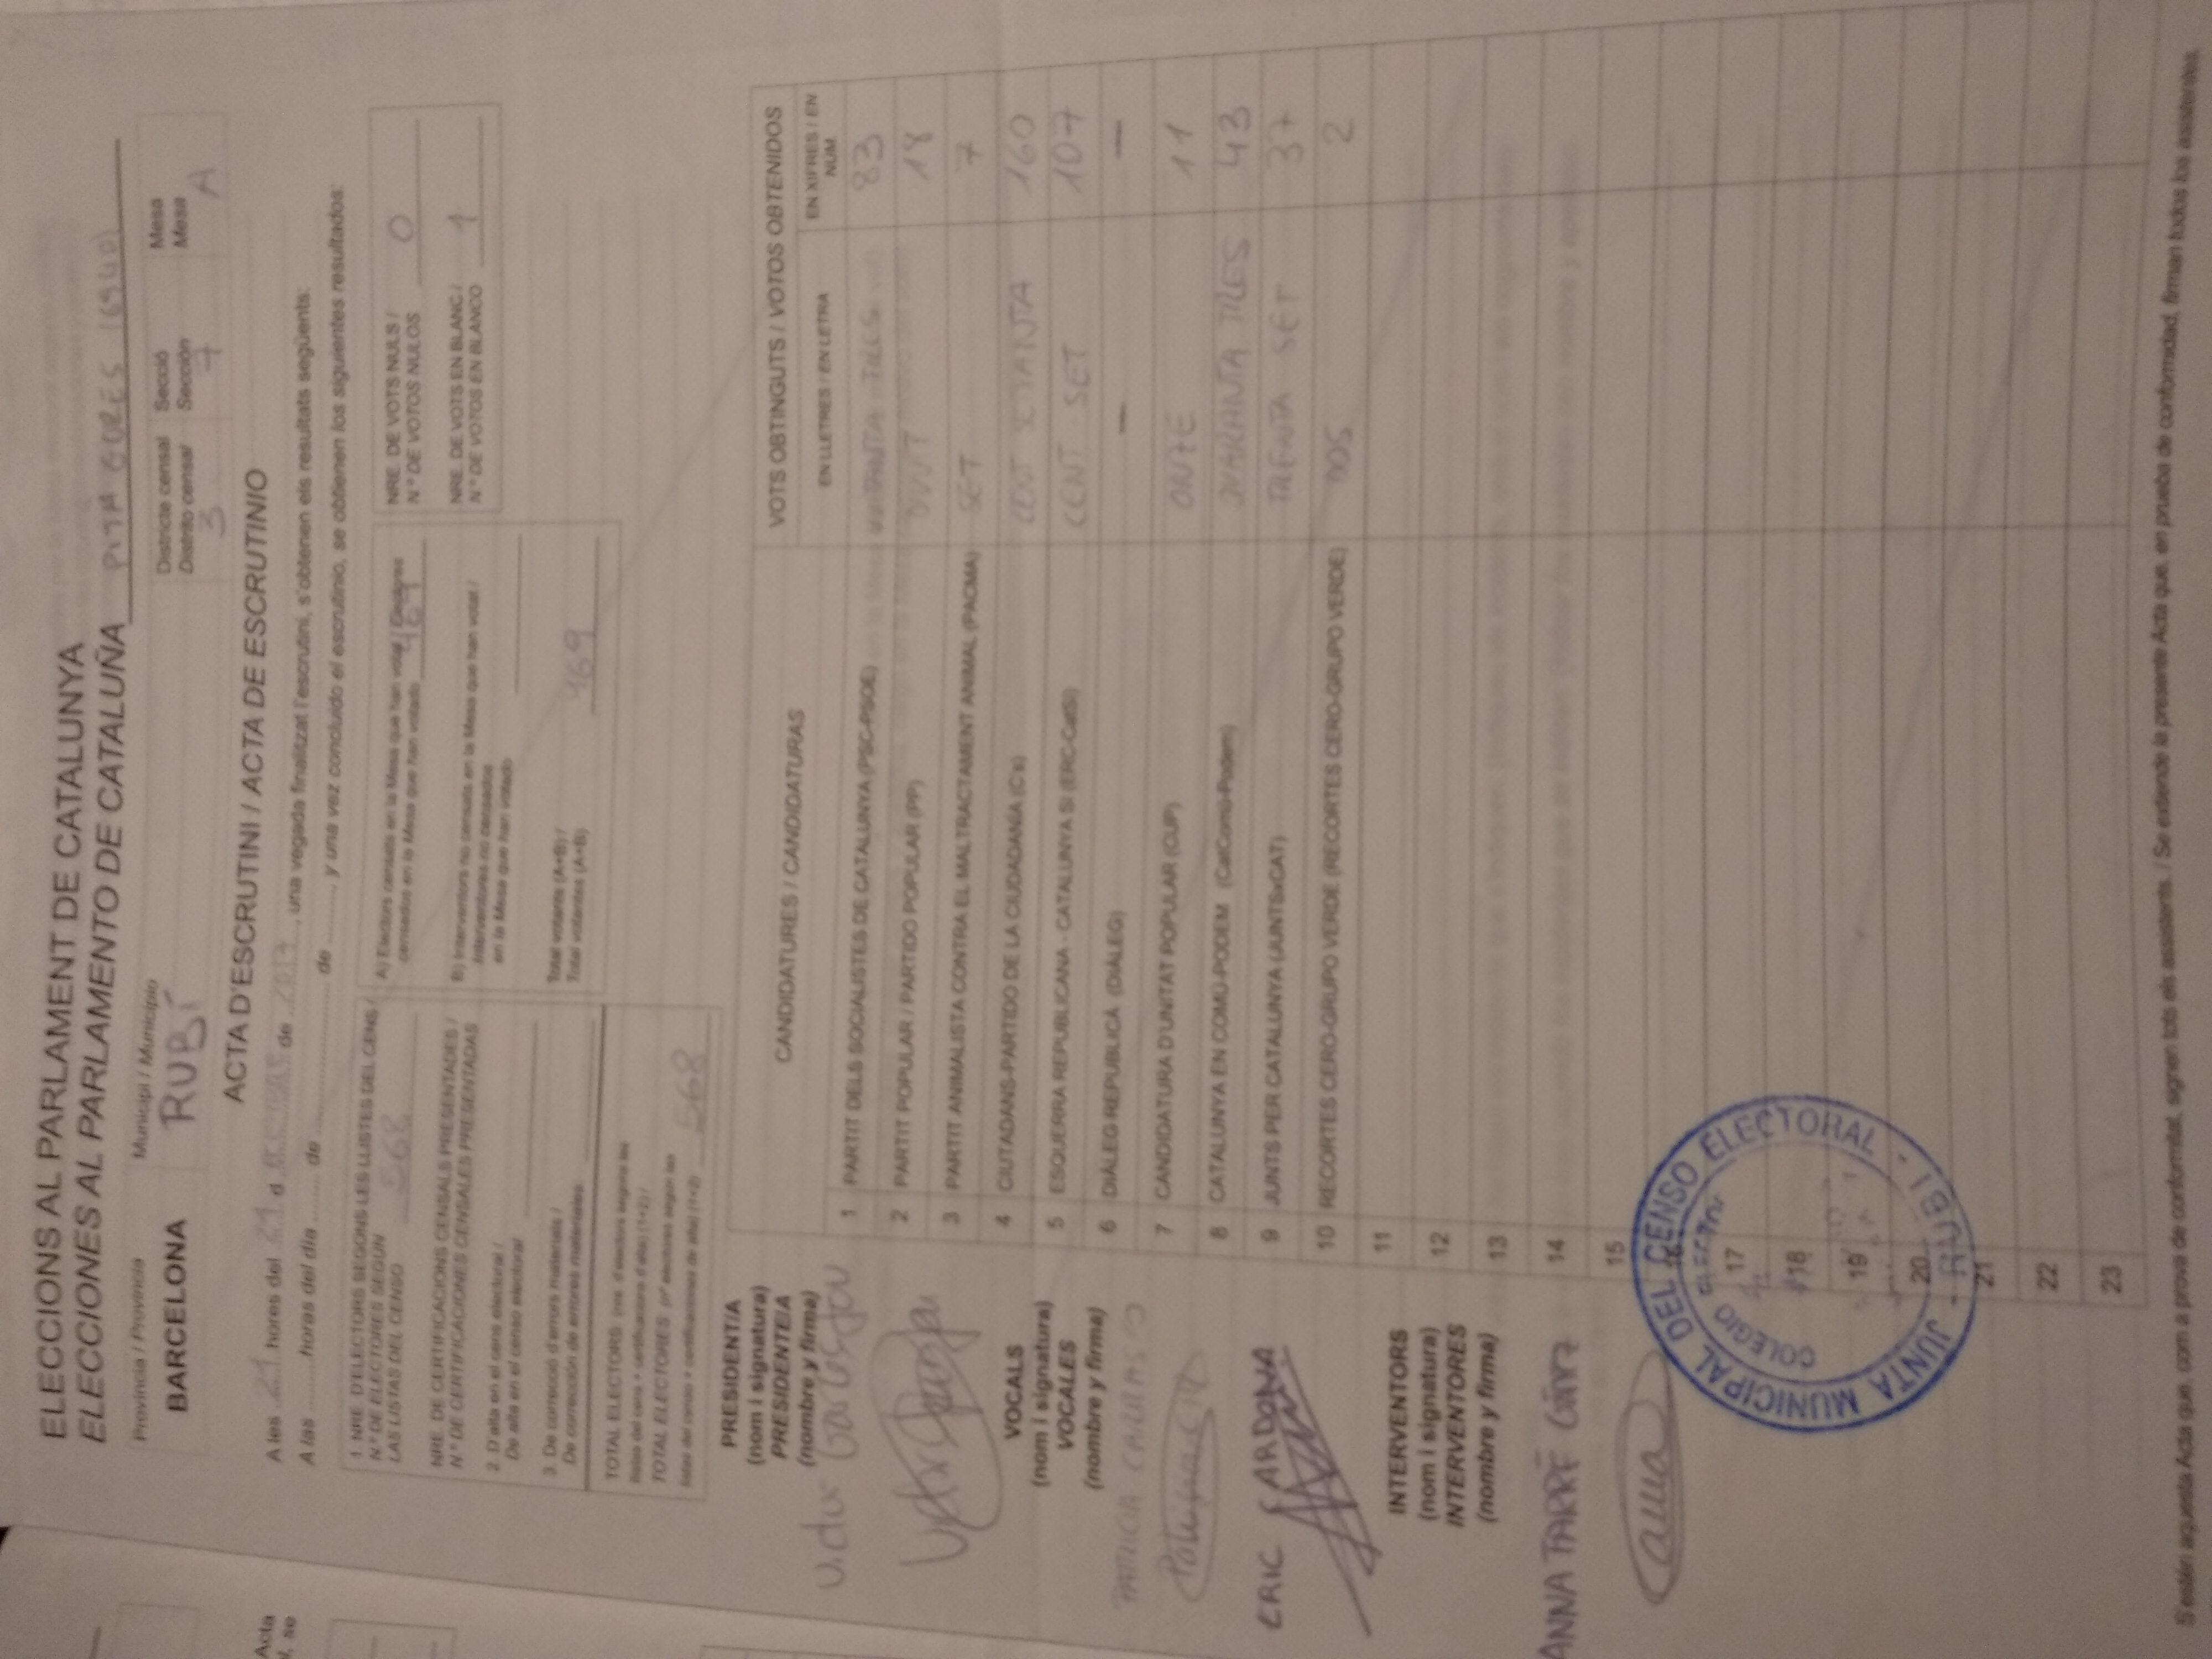 ELECCIONS AL PARLAMENT DE CATALUNYA
ELECCIONES AL PARLAMENTO DE CATALUÑA
Província / Provincia
BARCELONA
Municipi / Municipio
RUBÍ
Districte censal
Distrito censal
3
Secció
Sección
7
Mesa
Mesa
A
ACTA D'ESCRUTINI / ACTA DE ESCRUTINIO
A les 21 hores del 21 d de 2017, una vegada finalitzat l'escrutini, s'obtenen els resultats següents:
A las .........horas del día ........ de ............................ de ..........., y una vez concluido el escrutinio, se obtienen los siguientes resultados:
1. NRE. D'ELECTORS SEGONS LES LLISTES DEL CENS /
N.º DE ELECTORES SEGÚN
LAS LISTAS DEL CENSO 568
NRE. DE CERTIFICACIONS CENSALS PRESENTADES /
N.º DE CERTIFICACIONES CENSALES PRESENTADAS
2. D'alta en el cens electoral /
De alta en el censo electoral:
3. De correcció d'errors materials /
De corrección de errores materiales:
TOTAL ELECTORS: (nre. d'electors segons les
llistes del cens + certificacions d'alta) (1+2) /
TOTAL ELECTORES: (nº electores según las
listas del censo + certificaciones de alta) (1+2) 568
A) Electors censats en la Mesa que han votat / Electores
censados en la Mesa que han votado 469
B) Interventors no censats en la Mesa que han votat /
Interventores no censados
en la Mesa que han votado
Total votants (A+B) /
Total votantes (A+B) 469
NRE. DE VOTS NULS /
N.º DE VOTOS NULOS 0
NRE. DE VOTS EN BLANC /
N.º DE VOTOS EN BLANCO 1
PRESIDENT/A
(nom i signatura)
PRESIDENTE/A
(nombre y firma)
VOCALS
(nom i signatura)
VOCALES
(nombre y firma)
PATRICIA CARRASCO
ERIC CARDONA
INTERVENTORS
(nom i signatura)
INTERVENTORES
(nombre y firma)
ANNA FARRÉ
anna
CANDIDATURES / CANDIDATURAS
VOTS OBTINGUTS / VOTOS OBTENIDOS
EN LLETRES / EN LETRA
EN XIFRES / EN NÚM.
1 PARTIT DELS SOCIALISTES DE CATALUNYA (PSC-PSOE) VUITANTA TRES 83
2 PARTIT POPULAR / PARTIDO POPULAR (PP) DIVUIT 18
3 PARTIT ANIMALISTA CONTRA EL MALTRACTAMENT ANIMAL (PACMA) SET 7
4 CIUTADANS-PARTIDO DE LA CIUDADANÍA (C's) CENT SETANTA 160
5 ESQUERRA REPUBLICANA - CATALUNYA SÍ (ERC-CatSí) CENT SET 107
6 DIÀLEG REPUBLICÀ (DIÀLEG) — —
7 CANDIDATURA D'UNITAT POPULAR (CUP) ONZE 11
8 CATALUNYA EN COMÚ-PODEM (CatComú-Podem) QUARANTA TRES 43
9 JUNTS PER CATALUNYA (JUNTSxCAT) TRENTA SET 37
10 RECORTES CERO-GRUPO VERDE (RECORTES CERO-GRUPO VERDE) DOS 2
11
12
13
14
15
16
17
18
19
20
21
22
23
JUNTA MUNICIPAL DEL CENSO ELECTORAL - RUBI -
COLEGIO ELECTORAL
S'estén aquesta Acta que, com a prova de conformitat, signen tots els assistents. / Se extiende la presente Acta que, en prueba de conformidad, firman todos los asistentes.